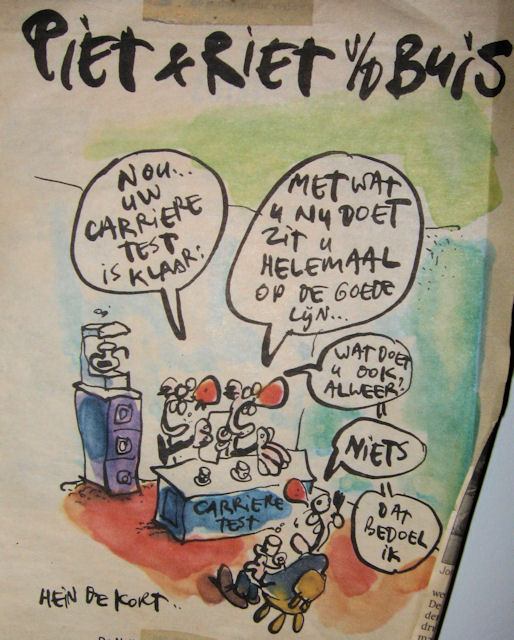 PIET & RIET V/D BUIS
NOU...
UW
CARRIERE
TEST
IS KLAAR!
MET WAT
U NU DOET
ZIT U
HELEMAAL
OP DE GOEDE
LIJN...
WAT DOET
U OOK
ALWEER?
NIETS
DAT
BEDOEL
IK
CARRIERE
TEST
HEIN DE KORT..